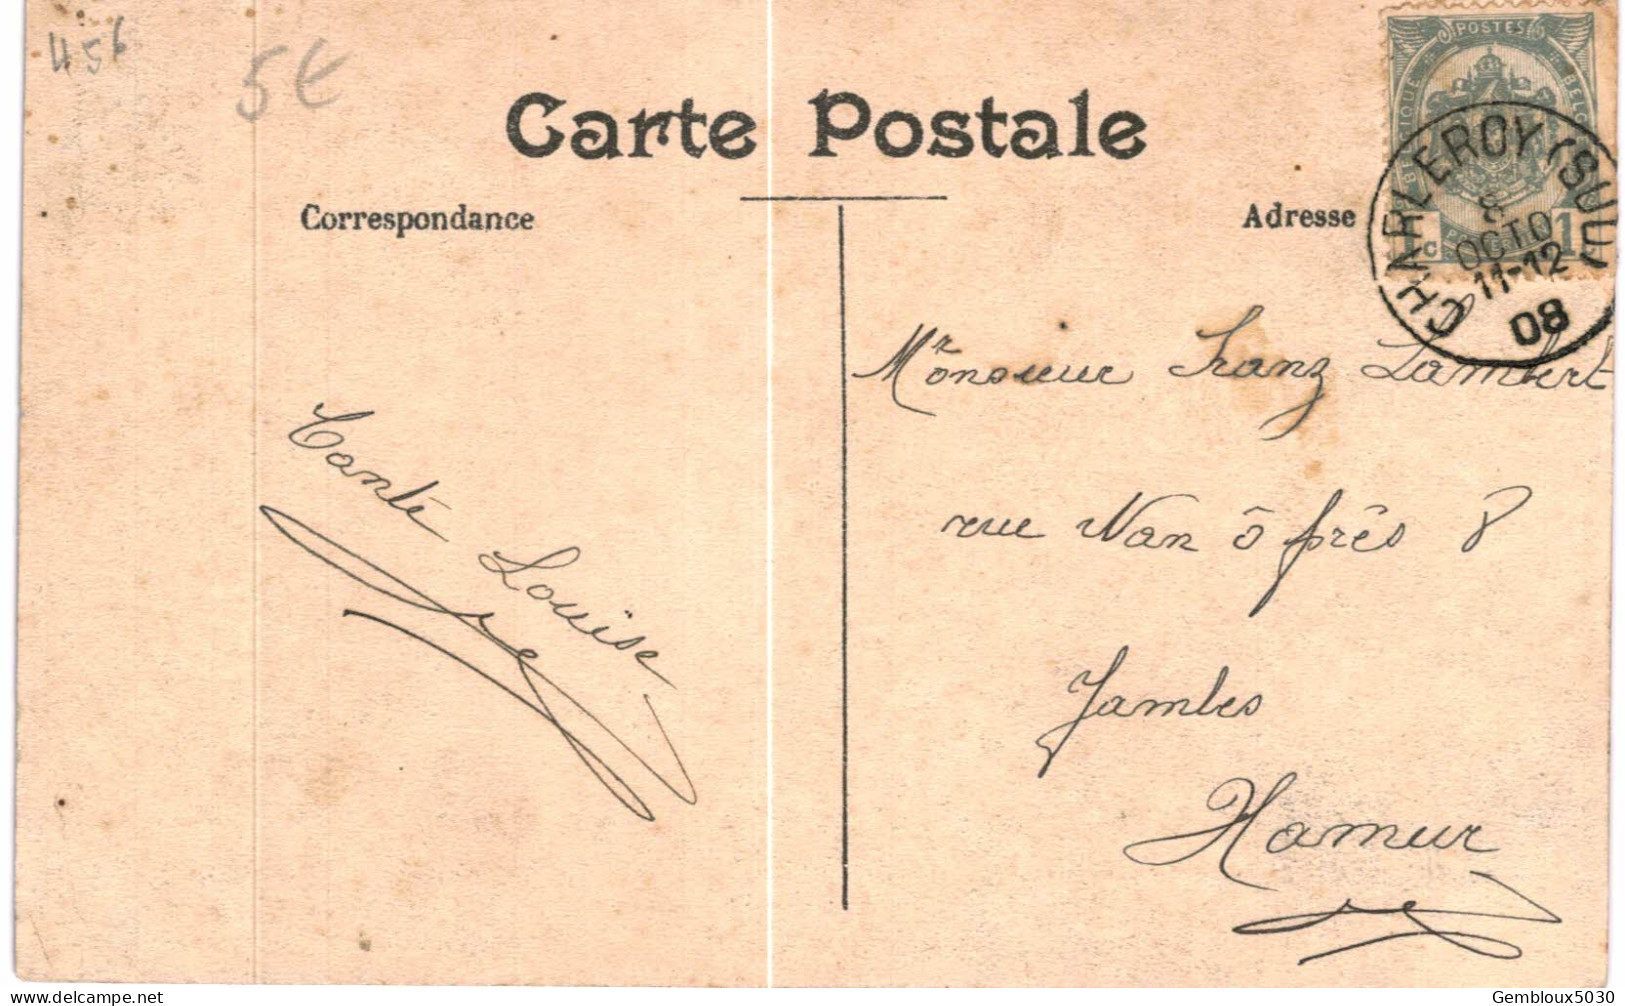 456
5€
Carte Postale
Correspondance
Adresse
POSTES
BELGIQUE
1 C
1
CHARLEROY (SUD)
8
OCTO
11-12
08
Monsieur Franz Lambert
rue Van ô près 8
Jambes
Namur
Tante
Louise
Gembloux5030